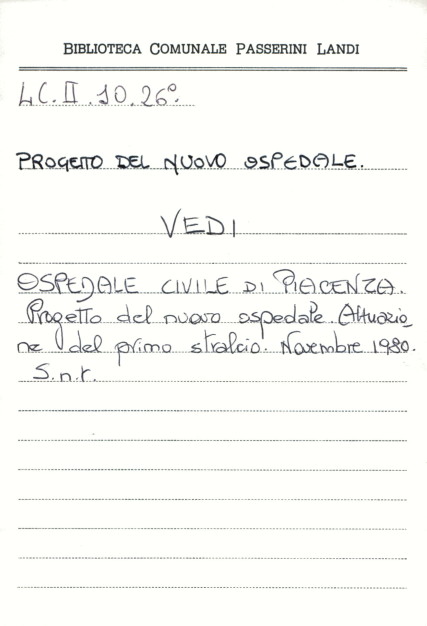 BIBLIOTECA COMUNALE PASSERINI LANDI
LC.II.10.26º.
PROGETTO DEL NUOVO OSPEDALE.
VEDI
OSPEDALE CIVILE DI PIACENZA.
Progetto del nuovo ospedale. Attuazio_
ne del primo stralcio. Novembre 1980.
S.n.t.